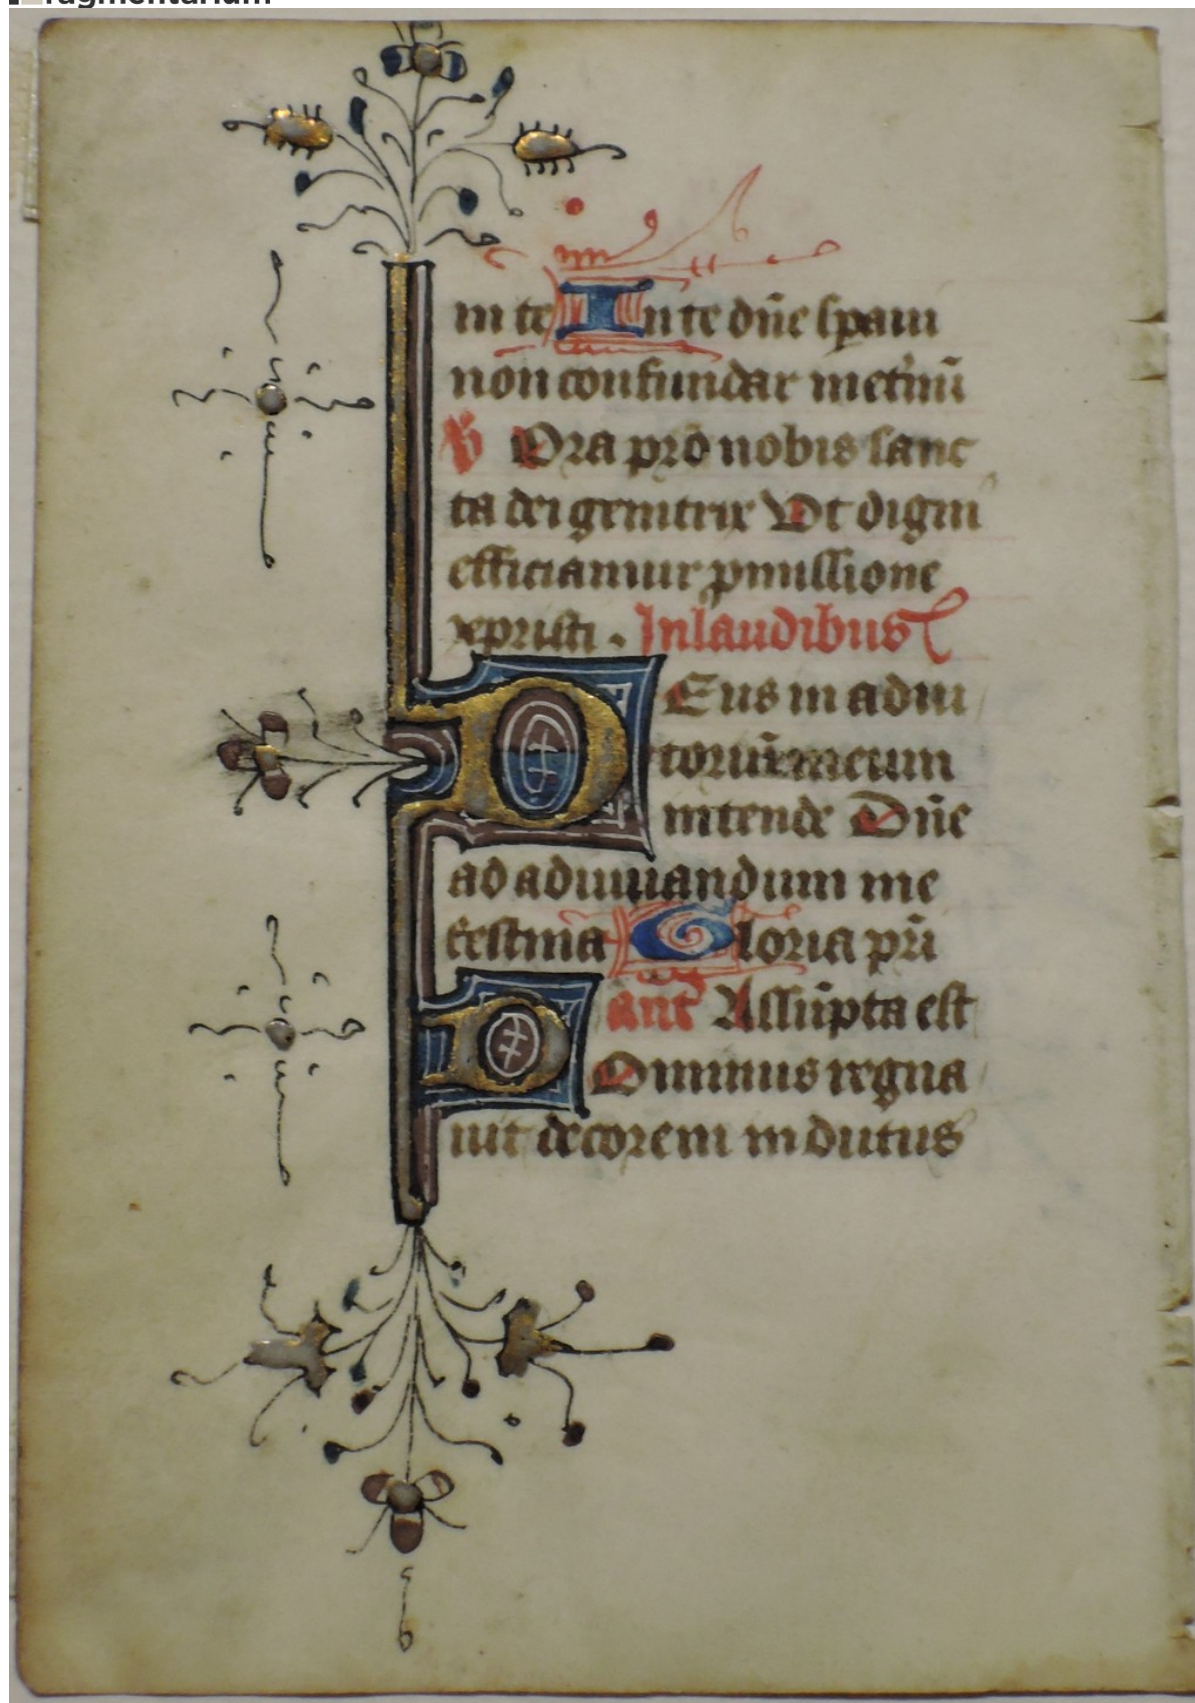 ragmentarium
in te In te dn̄e sp̱aui
non confundar in etnū
V Ora pro nobis sanc
ta dei genitrix Vt digni
efficiamur ꝓmissione
xpristi . In laudibus
DEus in adiu
toriū meum
intende Dn̄e
ad adiuuandum me
festina Gloria pr̄i
an̄t Assūpta est
DOminus regna
uit decorem indutus